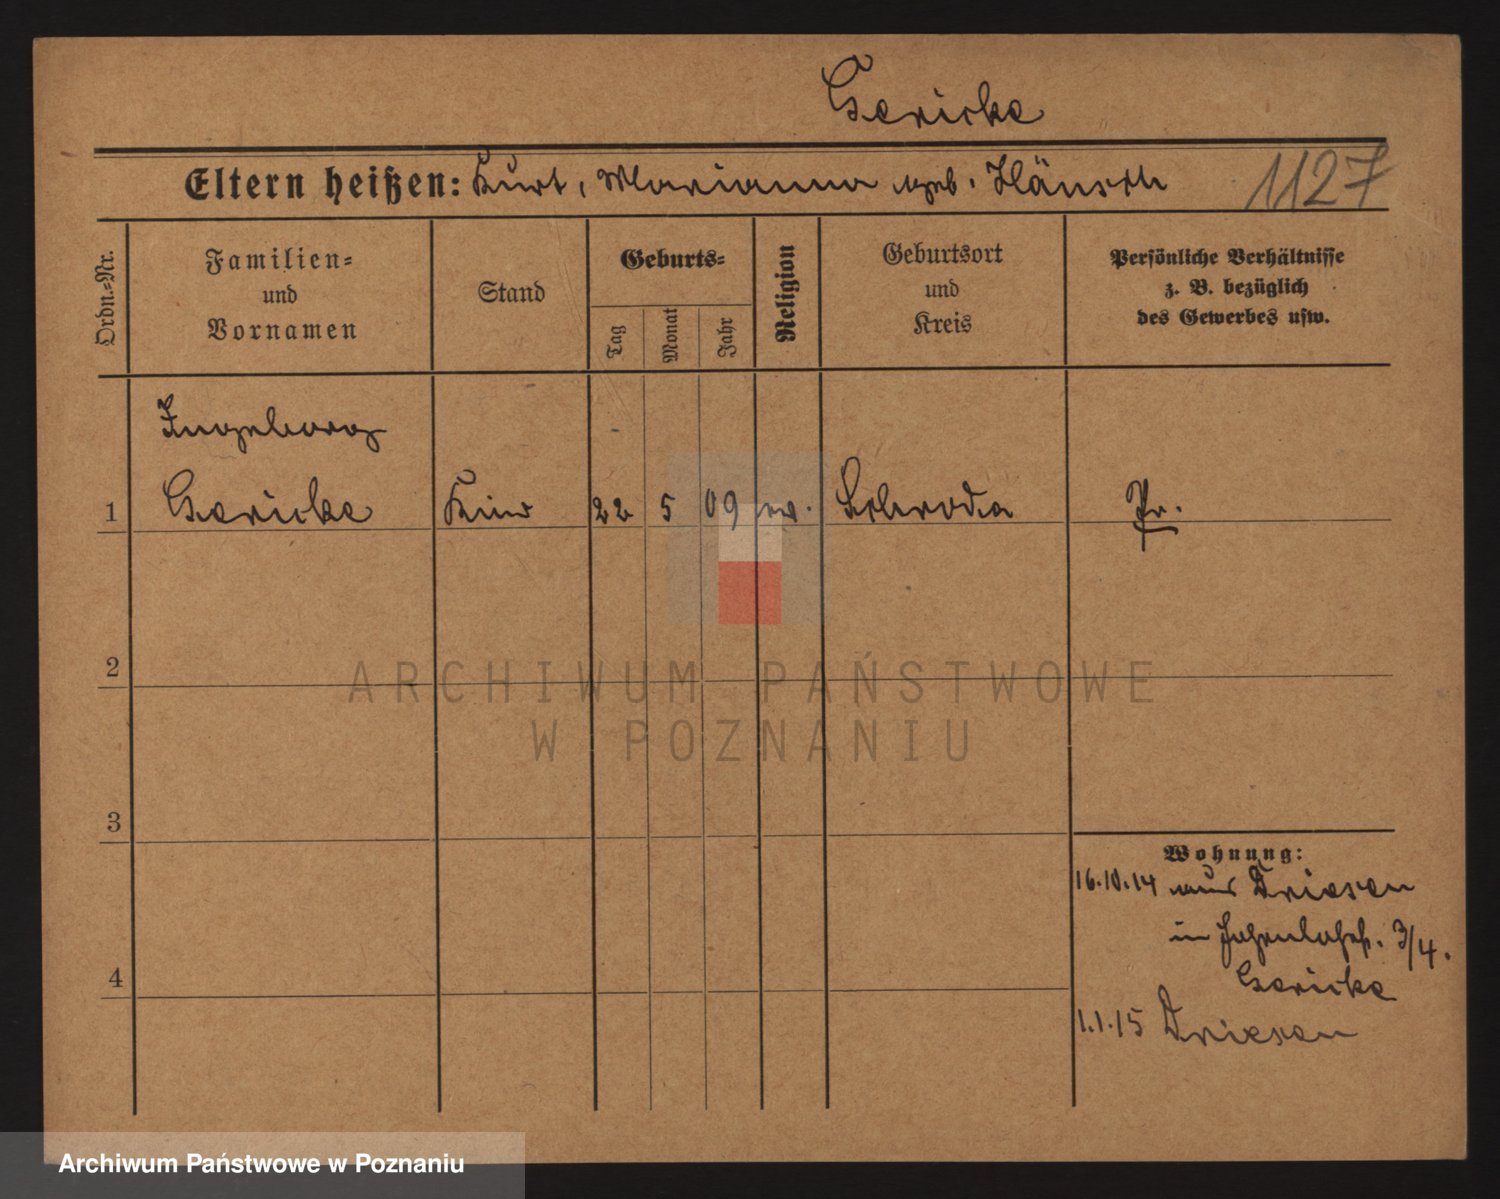 Gericke
Eltern heißen: Kurt, Marianna geb. Hänsch
1127
Ordn.-Nr.
Familien-
und
Vornamen
Stand
Geburts-
Tag
Monat
Jahr
Religion
Geburtsort
und
Kreis
Persönliche Verhältnisse
z. B. bezüglich
des Gewerbes usw.
Ingeborg
1 Gericke Kind 22 5 09 ev. Schroda Pr.
2
3
4
Wohnung:
16.10.14 aus Driesen
in 3/4.
Gericke
1.1.15 Driesen
ARCHIWUM PAŃSTWOWE
W POZNANIU
Archiwum Państwowe w Poznaniu